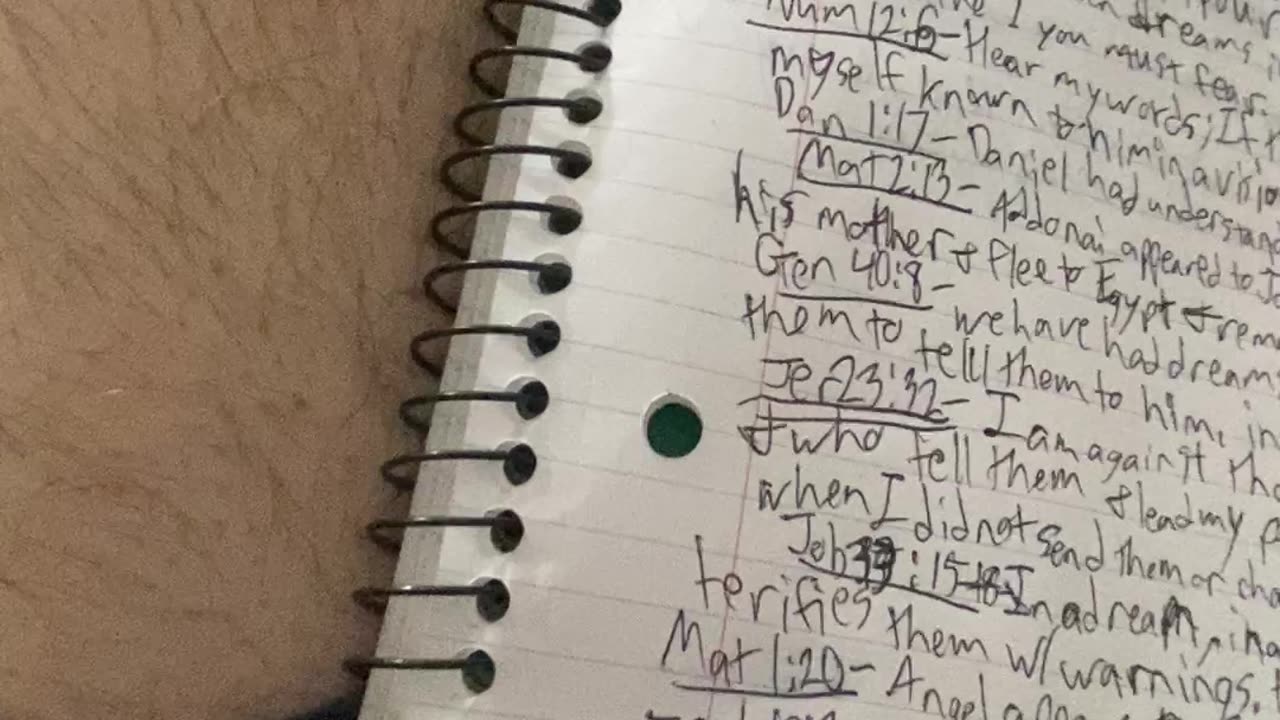 dreams
I you must fear
Num 12:6- Hear my words; If
myself known to him in a visio
Dan 1:17- Daniel had understand
Mat 2:13- Addonai appeared to J
his mother & flee to Egypt & rema
Gen 40:8- we have had dream
them to tell them to him, in
Jer 23:32- I am against the
& who tell them & lead my p
when I did not send them or cha
Job :15- In a dream, in a
terifies them w/ warnings.
Mat 1:20- Angel